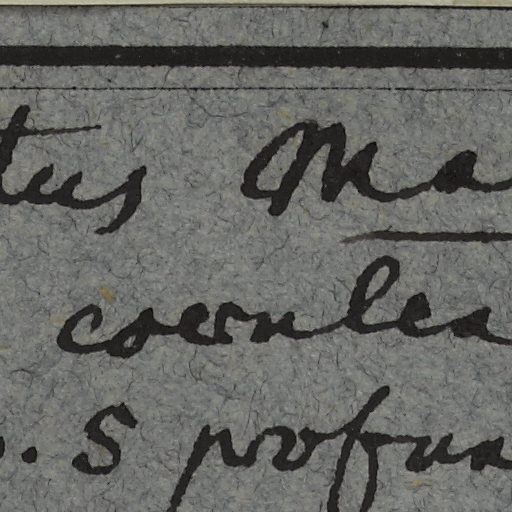 tus Ma
coerulea
. S profun